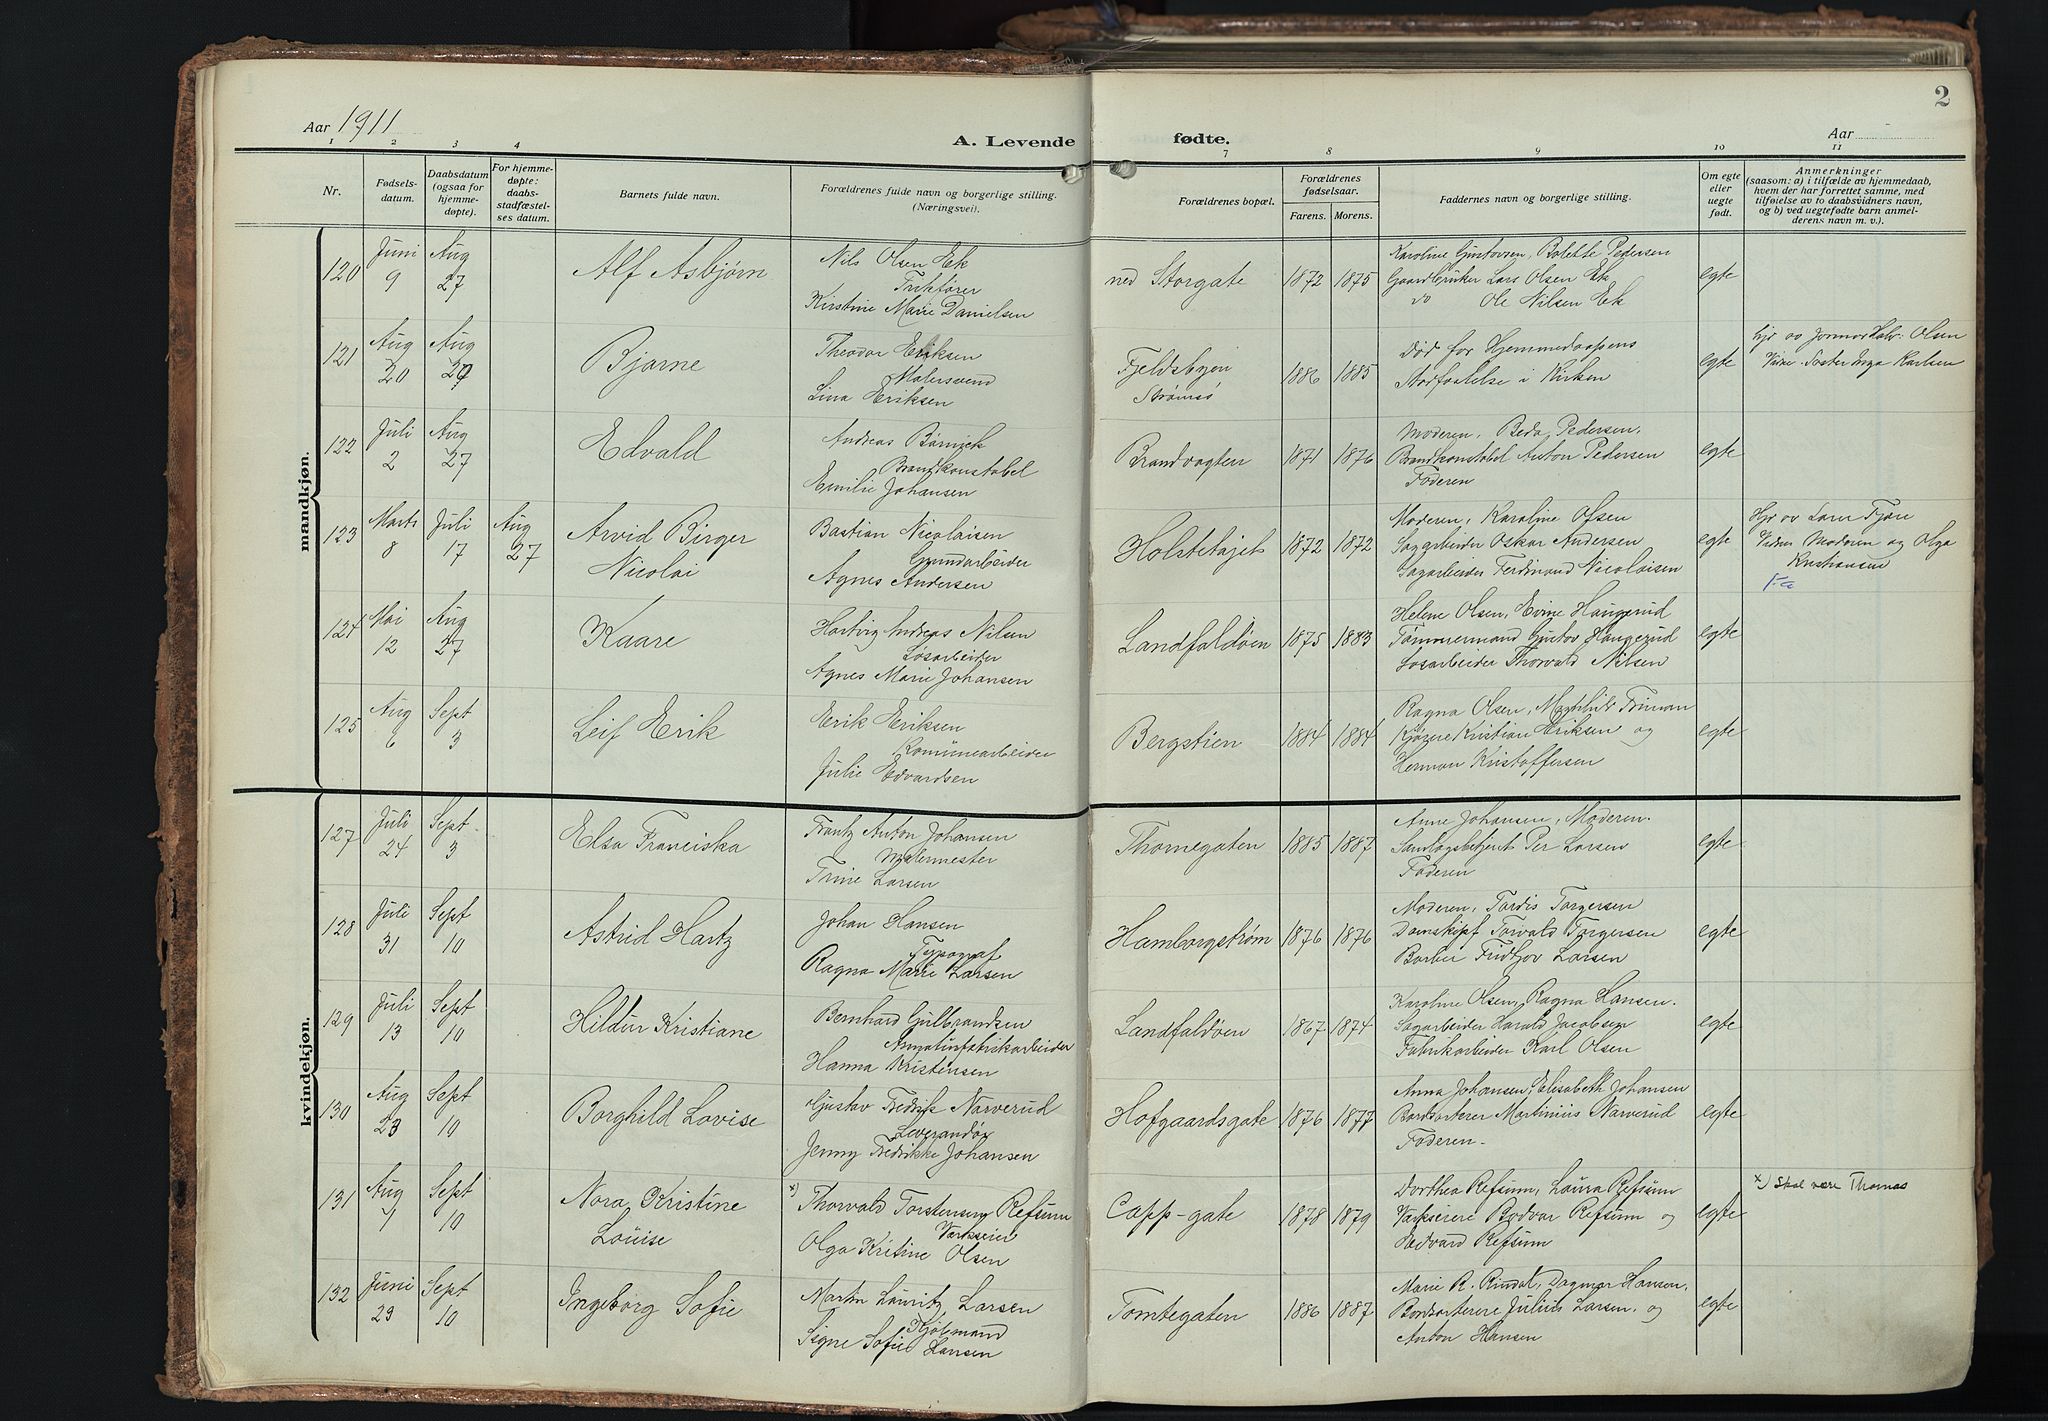 2
Aar 1911
A. Levende fødte.
Aar
1 2 3 4 7 8 9 10 11
Nr.
Fødsels-
datum.
Daabsdatum
(ogsaa for
hjemme-
døpte).
For hjemme-
døpte:
daabs-
stadfæstel-
ses datum.
Barnets fulde navn.
Forældrenes fulde navn og borgerlige stilling.
(Næringsvei).
Forældrenes bopæl.
Forældrenes
fødselsaar.
Farens. Morens.
Faddernes navn og borgerlige stilling.
Om egte
eller
uegte
født.
Anmerkninger
(saasom: a) i tilfælde av hjemmedaab,
hvem der har forrettet samme, med
tilføielse av to daabsvidners navn,
og b) ved uegtefødte barn anmel-
derens navn m. v.).
mandkjøn.
120
Juni
9
Aug
27
Alf Asbjørn
Nils Olsen Ek
Kirstine Marie Danielsen
ned Storgate
1872 1875
Karoline Gustovsen, Bolette Pedersen
Gaardbruker Lars Olsen Ek
do Ole Nilsen Ek
egte
121
Aug
20
Aug
27
Bjarne
Theodor Eriksen
Malersvend
Lina Eriksen
Fjeldsbyen
Strømsø
1886 1885
Død før Hjemmedaapens
Stadfæstelse i Kirken
egte
Olsen
Inga Karlsen
122
Juli
2
Aug
27
Edvald
Andreas
Brandkonstabel
Emilie Johansen
Brandvagten
1871 1876
Moderen, Beda Pedersen,
Brandkonstabel Anton Pedersen
Faderen
egte
123
Marts
8
Juli
17
Aug
27
Arvid Birger
Nicolai
Bastian Nicolaisen
Grundarbeider
Agnes Andersen
1872 1872
Moderen, Karoline Olsen
Sagarbeider Oskar Andersen
Sagarbeider Ferdinand Nicolaisen
egte
Hj. av
Vidner Moderen og Olga
Kristiansen
124
Mai
12
Aug
27
Kaare
Hartvig Andreas Nilsen
Løsarbeider
Agnes Marie Johansen
Landfaldøen
1875 1883
Helene Olsen, Evine Haugerud
Tømmermand Gustav Haugerud
Løsarbeider Thorvald Nilsen
egte
125
Aug
6
Sept
3
Leif Erik
Erik Eriksen
Komunearbeider
Julie Edvardsen
Bergstien
1884 1884
Ragna Olsen, Magnhild
Kjøzere Kristian Eriksen og
Herman Kristoffersen
egte
kvindekjøn.
127
Juli
24
Sept.
3
Elsa Franciska
Frantz Anton Johansen
Malermester
Trine Larsen
Thornegaten
1885 1887
Anne Johansen, Moderen.
Samlagsbetjent Per Larsen
Faderen
egte
128
Juli
31
Sept
10
Astrid Hartz
Johan Hansen
Typograf
Ragna Marie Larsen
Hamborgstrøm
1876 1876
Moderen, Tordis Torgersen
Damskipf Torvald Torgersen
Barber Fridtjov Larsen
egte
129
Juli
13
Sept
10
Hildur Kristiane
Bernhard Gulbrandsen
Armaturfabrikarbeider
Hanna Kristensen
Landfaldøen
1867 1874
Karoline Olsen, Ragna Hansen.
Sagarbeider Harald Jacobsen
Fabrikarbeider Karl Olsen
egte
130
Aug
23
Sept
10
Borghild Lovise
Gustav Fredrik Narverud
Leverandør
Jenny Fredrikke Johansen
Hofgaardsgate
1876 1877
Anna Johansen, Elisabeth Johansen
Bordsorterer Martinius Narverud
Faderen-
egte
131
Aug
1
Sept
10
Nora Kristine
Louise
x) Thorvald Torstensen Refsum
Værkseier
Olga Kritine Olsen
Capp-gate
1878 1879
Dorthea Refsum, Laura Refsum
Værkseiere Bødvar Refsum og
Edvard Refsum
egte
x) Skal være Thomas
132
Juni
23
Sept
10
Ingeborg Sofie
Martin Lauritz Larsen
Kjøbmand
Signe Sofie Hansen
Tomtegaten
1886 1887
Marie R. Rindal, Dagmar Hansen,
Bordsorterere Julius Larsen, og
Anton Hansen
egte